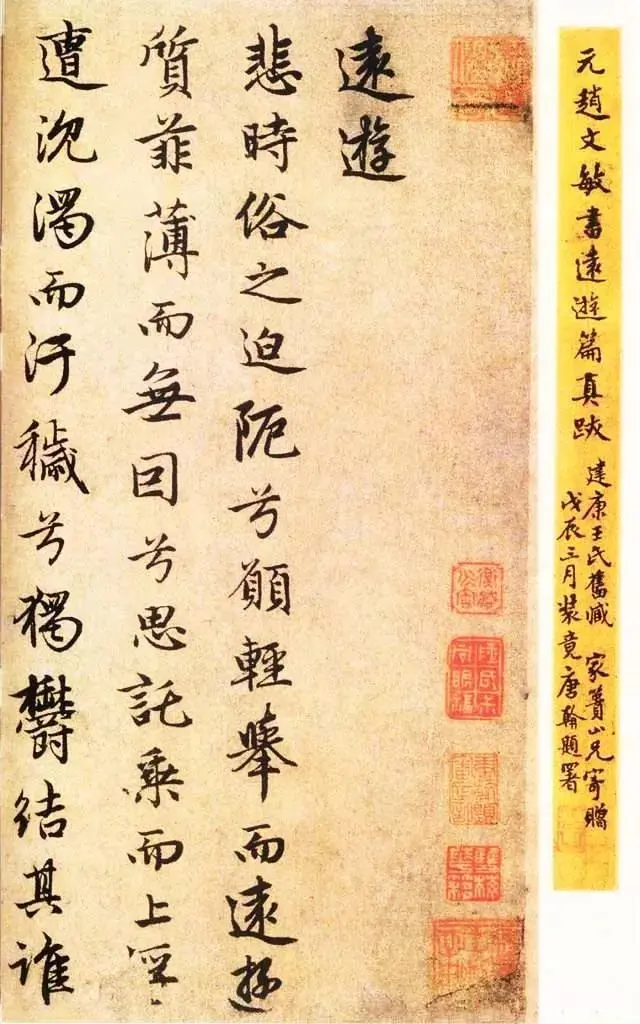 元趙文敏書遠遊篇真跡
建康王氏舊藏 家山兄寄贈
戊辰三月裝竟唐翰題署
遠遊
悲時俗之迫阨兮願輕舉而遠遊
質菲薄而無因兮思託乘而上
遭沈濁而汙穢兮獨鬱結其誰